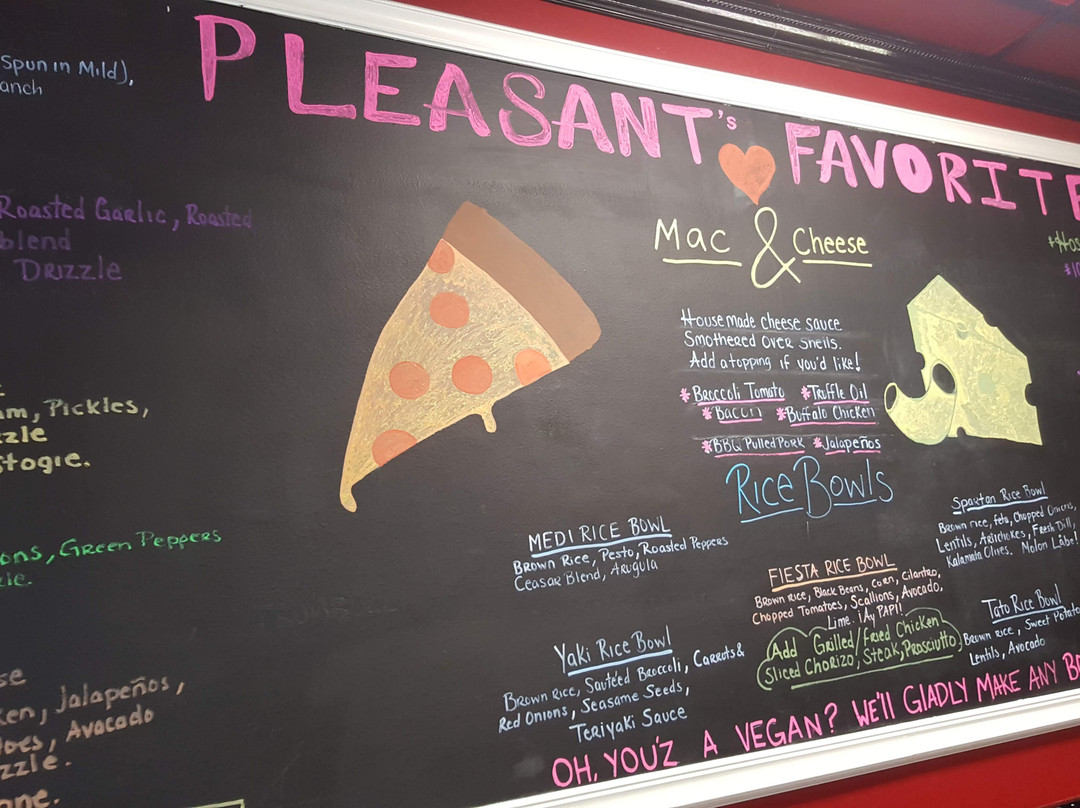 PLEASANT's FAVORITE
Spun in Mild),
anch
Roasted Garlic, Roasted
blend
Drizzle
am, Pickles,
zzle
stogie.
ons, Green Peppers
zle.
se
ken, Jalapeños,
toes, Avocado
zzle.
one.
Mac & Cheese
House made cheese sauce
Smothered over snells.
Add a topping if you'd like!
*Broccoli Tomato *Truffle Oil
*Bacon *Buffalo Chicken
*BBQ Pulled Pork *Jalapeños
Rice Bowls
MEDI RICE BOWL
Brown Rice, Pesto, Roasted Peppers
Ceasar Blend, Arugula
Yaki Rice Bowl
Brown Rice, Sautéed Broccoli, Carrots &
Red Onions, Seasame Seeds,
Teriyaki Sauce
FIESTA RICE BOWL
Brown rice, Black Beans, Corn, Cilantro,
Chopped Tomatoes, Scallions, Avocado,
Lime. ¡Ay PAPi!
Add Grilled/Fried Chicken
Sliced Chorizo, Steak, Prosciutto
Spartan Rice Bowl
Brown rice, feta, Chopped
Lentils, Artichokes, Fresh Dill,
Kalamata Olives. Molon Labe!
Tato Rice Bowl
Brown rice, Sweet Potato
Lentils, Avocado
OH, YOU'Z A VEGAN? WE'LL GLADLY MAKE ANY